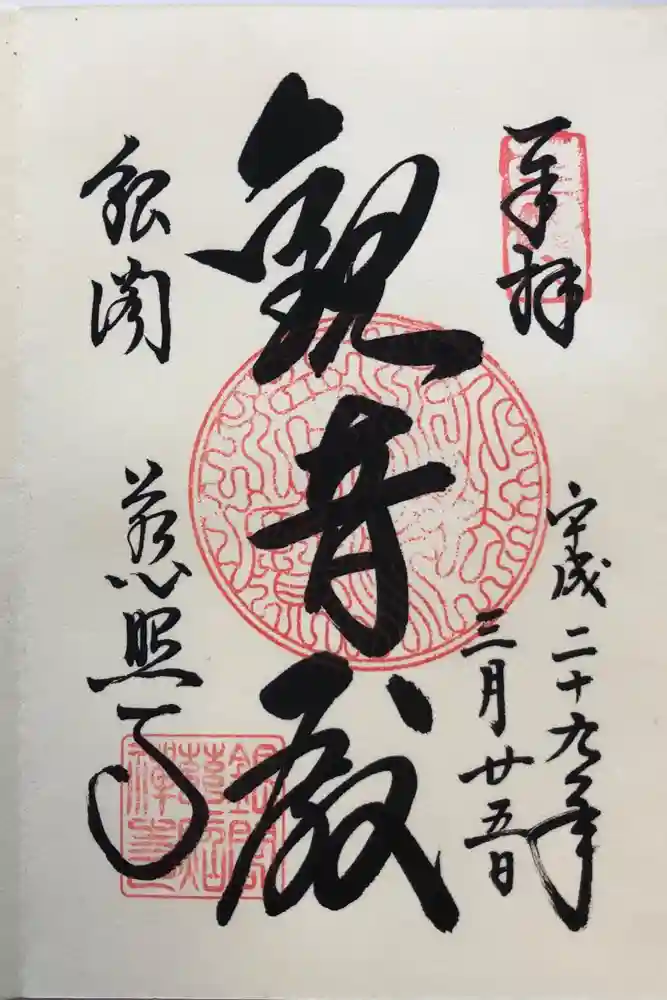 奉拝
平成二十九年
三月廿五日
観音殿
銀閣
慈照寺
銀閣
慈照
禅寺